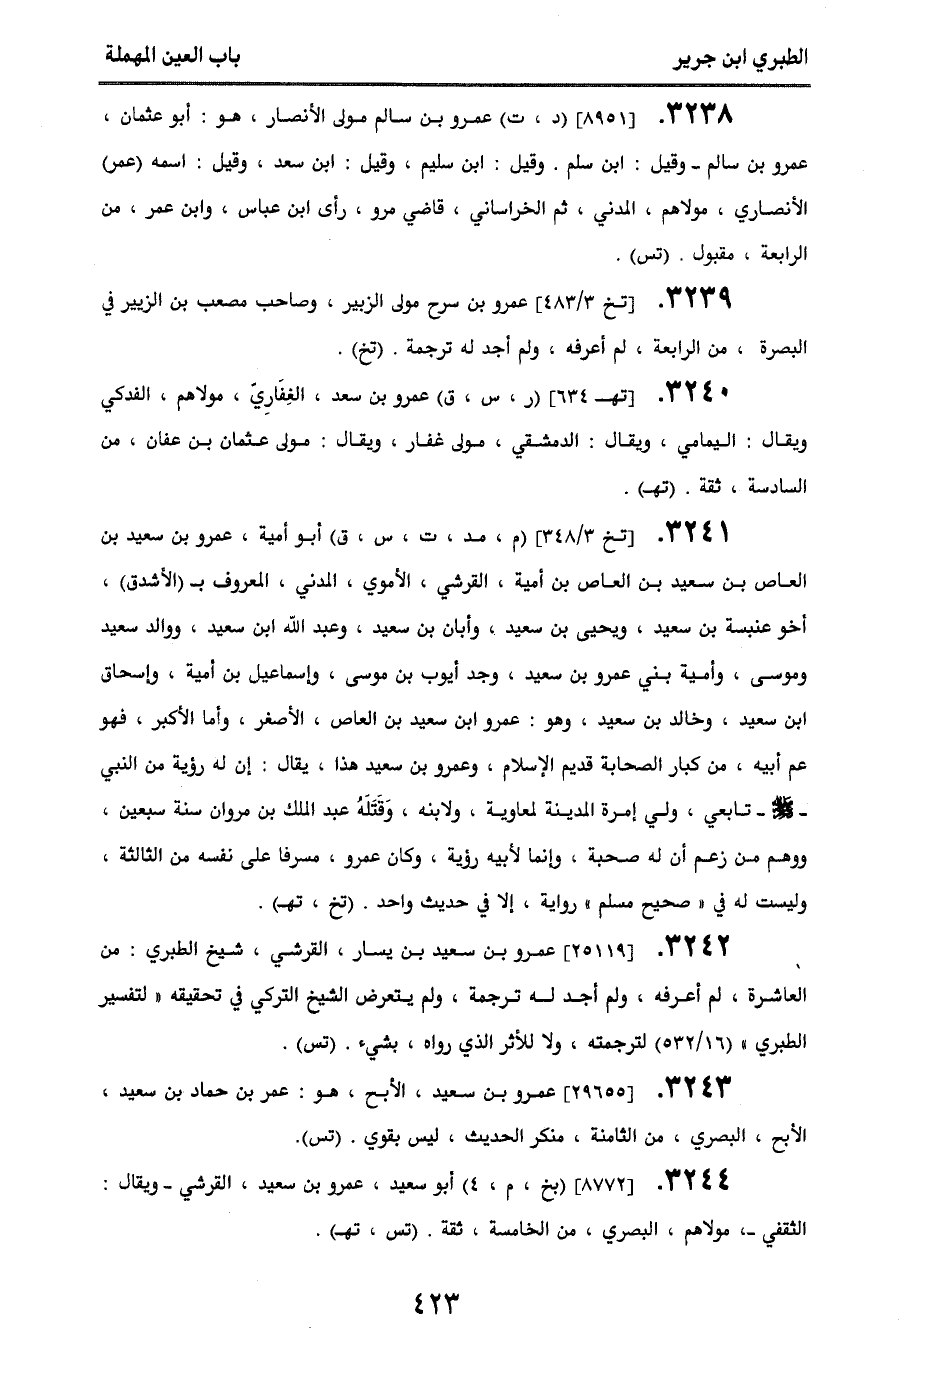 الطبري ابن جرير باب العين المهملة
٣٢٣٨. [٨٩٥١] (د ، ت) عمرو بن سالم مولى الأنصار ، هو : أبو عثمان ،
عمرو بن سالم ـ وقيل : ابن سلم . وقيل : ابن سليم ، وقيل : ابن سعد ، وقيل : اسمه (عمر)
الأنصاري ، مولاهم ، المدني ، ثم الخراساني ، قاضي مرو ، رأى ابن عباس ، وابن عمر ، من
الرابعة ، مقبول . (تس) .
٣٢٣٩. [تخ ٤٨٣/٣] عمرو بن سرح مولى الزبير ، وصاحب مصعب بن الزبير في
البصرة ، من الرابعة ، لم أعرفه ، ولم أجد له ترجمة . (تخ) .
٣٢٤٠. [تهـ ٦٣٤] (ر ، س ، ق) عمرو بن سعد ، الغِفَارِيّ ، مولاهم ، الفدكي
ويقال : اليمامي ، ويقال : الدمشقي ، مولى غفار ، ويقال : مولى عثمان بن عفان ، من
السادسة ، ثقة . (تهـ) .
٣٢٤١. [تخ ٣٤٨/٣] (م ، مد ، ت ، س ، ق) أبو أمية ، عمرو بن سعيد بن
العاص بن سعيد بن العاص بن أمية ، القرشي ، الأموي ، المدني ، المعروف بـ (الأشدق) ،
أخو عنبسة بن سعيد ، ويحيى بن سعيد ، وأبان بن سعيد ، وعبد الله ابن سعيد ، ووالد سعيد
وموسى ، وأمية بني عمرو بن سعيد ، وجد أيوب بن موسى ، وإسماعيل بن أمية ، وإسحاق
ابن سعيد ، وخالد بن سعيد ، وهو : عمرو ابن سعيد بن العاص ، الأصغر ، وأما الأكبر ، فهو
عم أبيه ، من كبار الصحابة قديم الإسلام ، وعمرو بن سعيد هذا ، يقال : إن له رؤية من النبي
ـ ﷺ ـ تابعي ، ولي إمرة المدينة لمعاوية ، ولابنه ، وَقَتَلَهُ عبد الملك بن مروان سنة سبعين ،
ووهم من زعم أن له صحبة ، وإنما لأبيه رؤية ، وكان عمرو ، مسرفا على نفسه من الثالثة ،
وليست له في « صحيح مسلم » رواية ، إلا في حديث واحد . (تخ ، تهـ) .
٣٢٤٢. [٢٥١١٩] عمرو بن سعيد بن يسار ، القرشي ، شيخ الطبري : من
العاشرة ، لم أعرفه ، ولم أجد له ترجمة ، ولم يتعرض الشيخ التركي في تحقيقه « لتفسير
الطبري » (٥٣٢/١٦) لترجمته ، ولا للأثر الذي رواه ، بشيء . (تس) .
٣٢٤٣. [٢٩٦٥٥] عمرو بن سعيد ، الأبح ، هو : عمر بن حماد بن سعيد ،
الأبح ، البصري ، من الثامنة ، منكر الحديث ، ليس بقوي . (تس).
٣٢٤٤. [٨٧٧٢] (بخ ، م ، ٤) أبو سعيد ، عمرو بن سعيد ، القرشي ـ ويقال :
الثقفي ـ، مولاهم ، البصري ، من الخامسة ، ثقة . (تس ، تهـ) .
٤٢٣